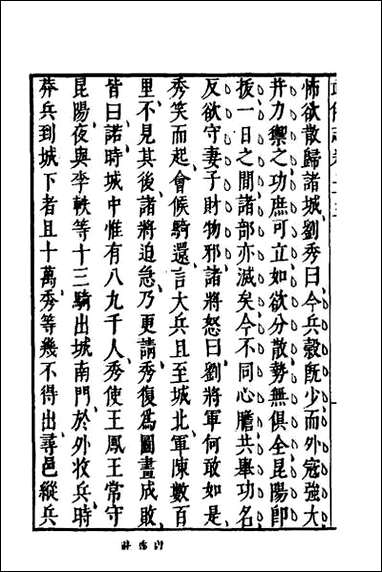 怖欲散歸諸城劉秀曰今兵穀既少而外寇強大
并力禦之功庶可立如欲分散勢無俱全昆陽即
拔一日之間諸部亦滅矣今不同心膽共舉功名
反欲守妻子財物邪諸將怒曰劉將軍何敢如是
秀笑而起會候騎還言大兵且至城北軍陳數百
里不見其後諸將迫急乃更請秀復為圖畫成敗
皆曰諾時城中惟有八九千人秀使王鳳王常守
昆陽夜與李軼等十三騎出城南門於外收兵時
莽兵到城下者且十萬秀等幾不得出尋邑縱兵